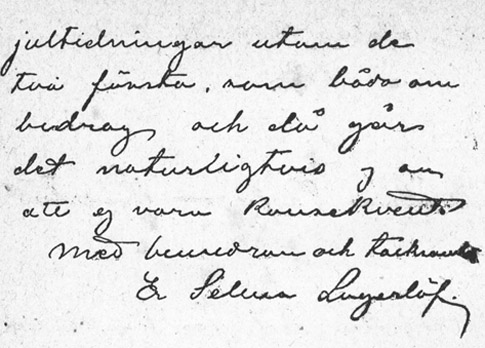 jultidningar utom de
två första, som båda om
bidrag, och då går
det naturligtvis ej an
att ej vara konsekvent
Med beundran och tacksamhet
Er Selma Lagerlöf.